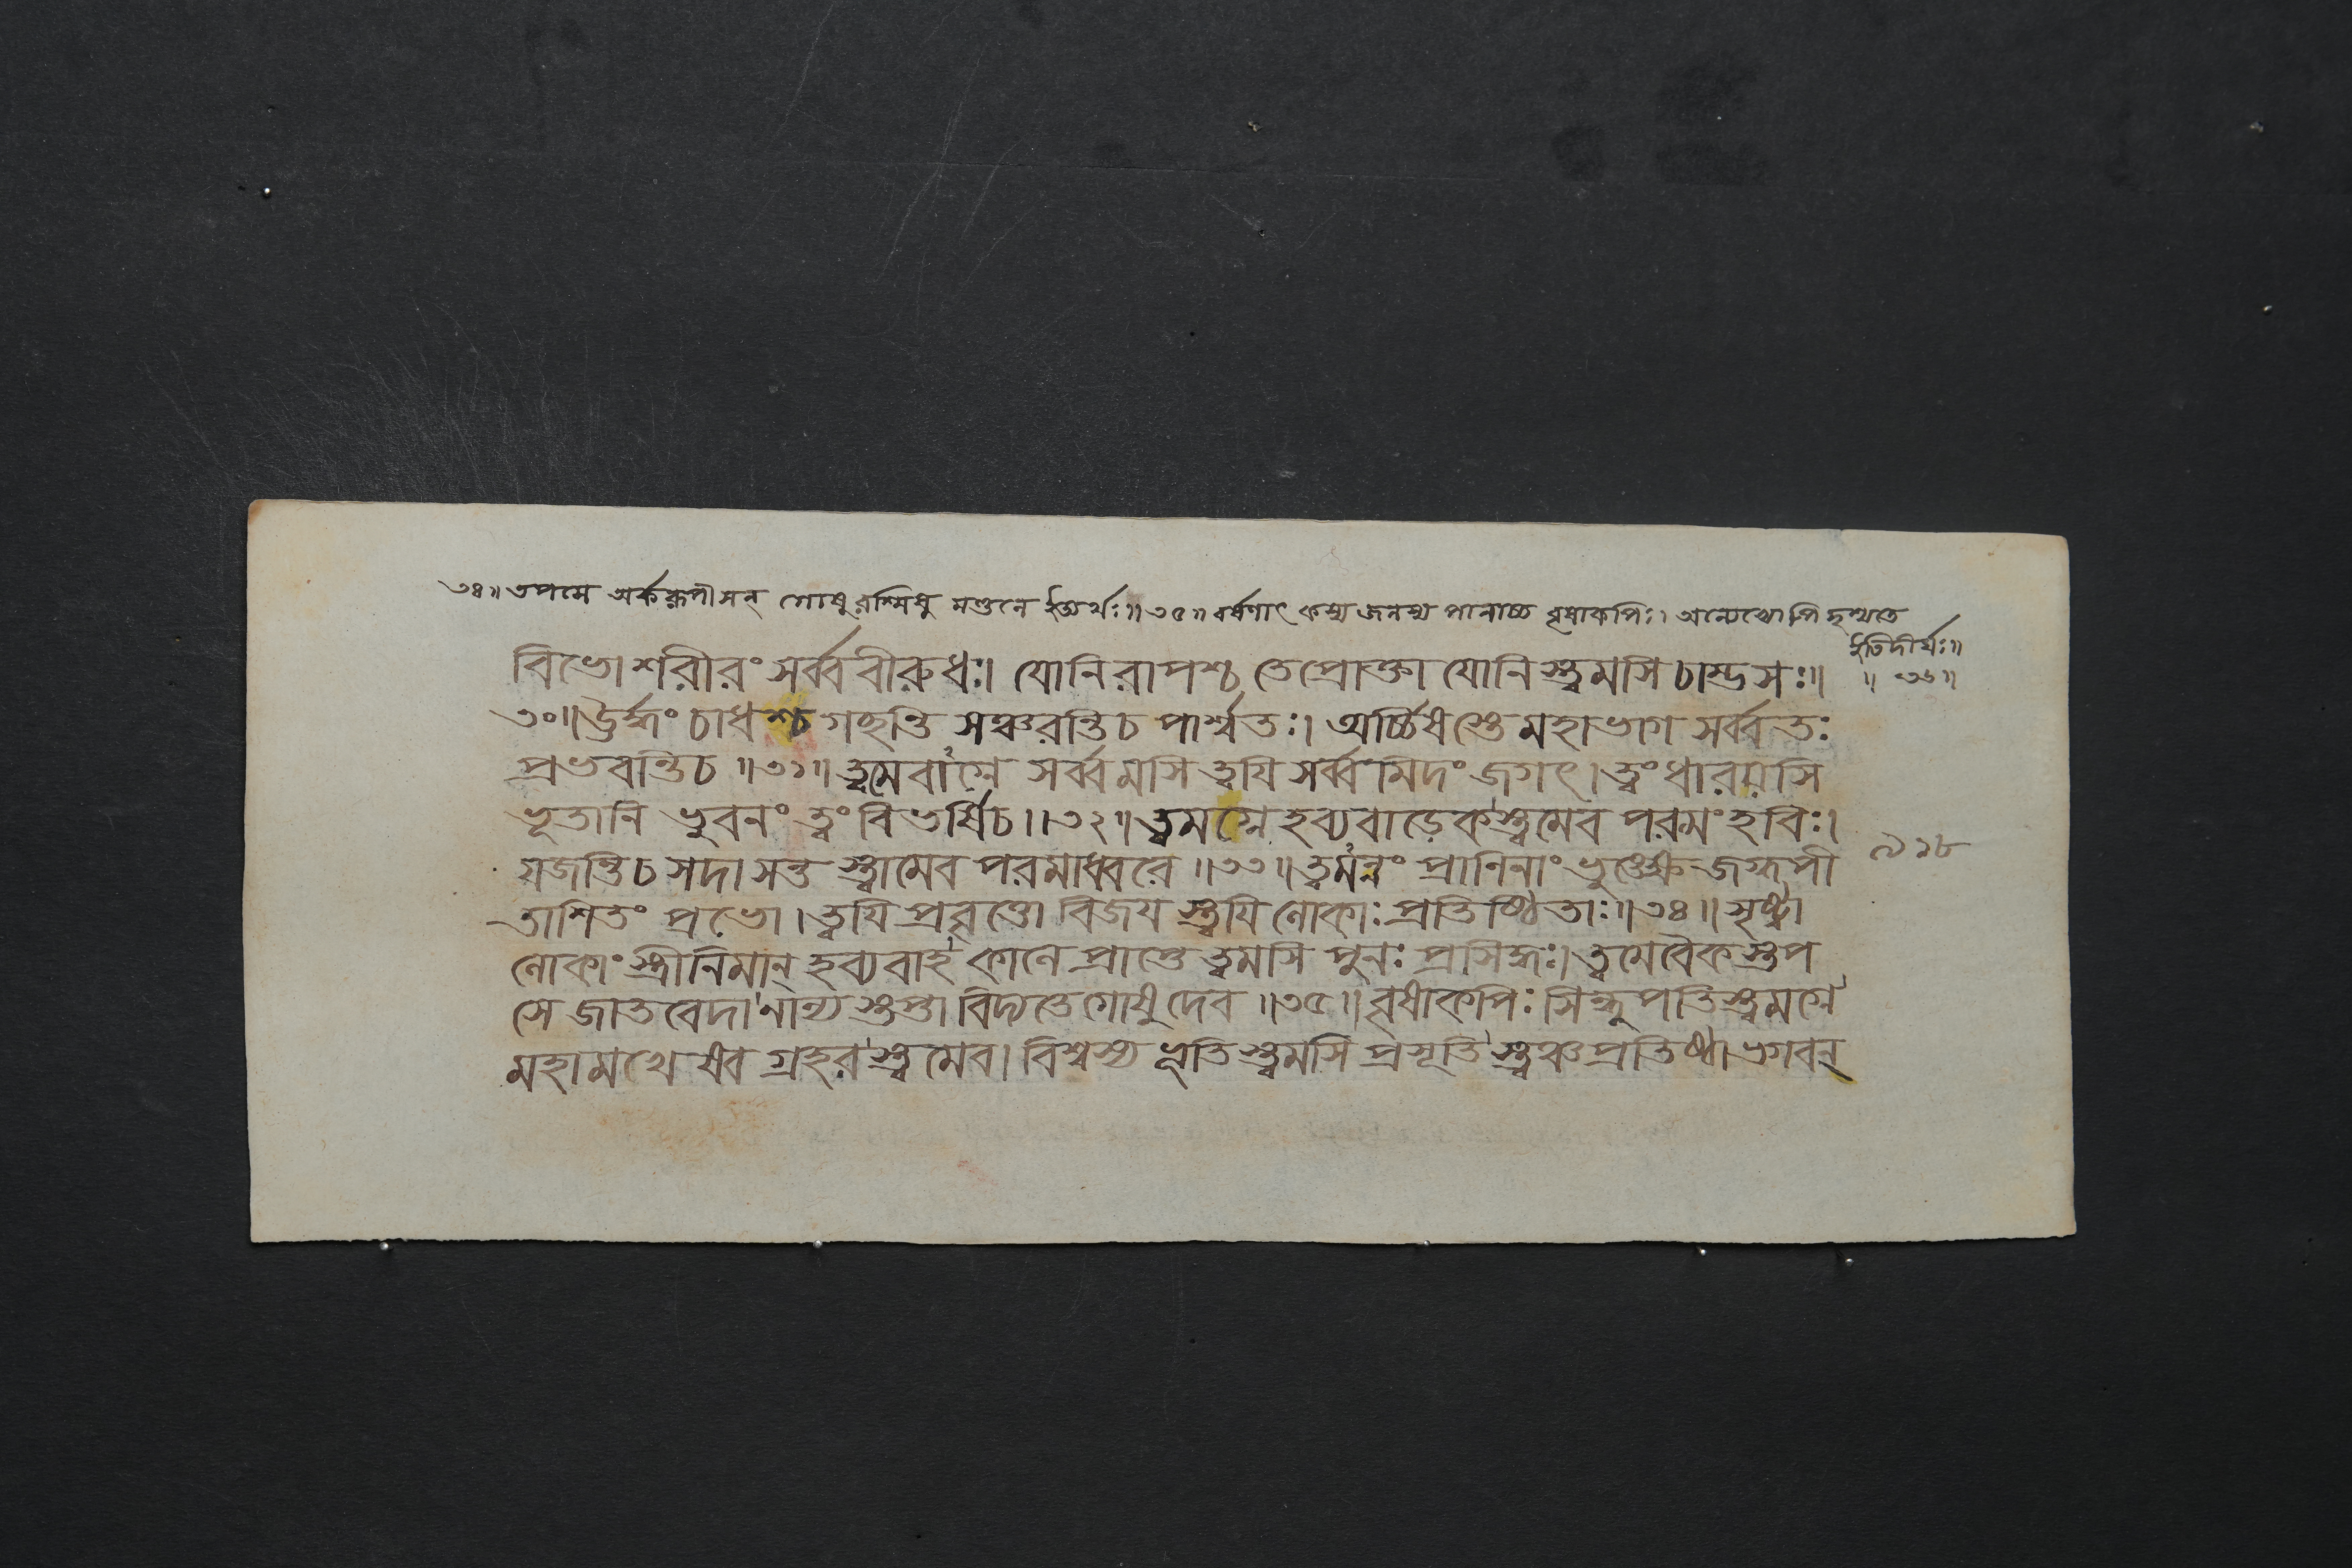 ৩৪॥ তপসে অর্করূপীসন্ গোষুরশ্মিষু মণ্ডলে ইত্যর্থঃ॥ ৩৫॥ বর্ষণাৎ কস্য জলস্য পানাচ্চ বৃষাকপিঃ। অন্যেষ্বোপি দৃশ্যতে
ইতিদীর্ঘঃ॥
॥ ৩৬॥
বিভোশরীরং সর্ব্ববীরুধঃ। যোনিরাপশ্চ তেপ্রোক্তা যোনিস্ত্বমসি চাম্ভসঃ॥
৩০॥ ঊর্দ্ধং চাধশ্চ গচ্ছন্তি সঞ্চরন্তিচ পার্শ্বতঃ। অর্চ্চিষস্তে মহাভাগ সর্ব্বতঃ
প্রভবন্তিচ ॥৩১॥ ত্বমেবাগ্নে সর্ব্বমসি ত্বযি সর্ব্বমিদং জগৎ। ত্বং ধারয়সি
ভূতানি ভুবনং ত্বং বিভর্ষিচ।।৩২॥ ত্বমগ্নে হব্যবাড়েকস্ত্বমেব পরমং হবিঃ।
যজন্তিচ সদা সন্ত স্ত্বামেব পরমাধ্বরে ॥৩৩॥ ত্বমন্নং প্রানিনাং ভুঙ্ক্ষে জগ্ধপী
৯১৮
তাশিতং প্রভো। ত্বযি প্রবৃত্তো বিজয স্ত্বযি লোকাঃ প্রতিষ্ঠিতাঃ॥৩৪॥ সৃষ্ট্বা
লোকাং স্ত্রীনিমান্ হব্যবাহ কালে প্রাপ্তে ত্বমসি পুনঃ প্রসিদ্ধঃ। ত্বমেবৈকস্তপ
সে জাতবেদা নান্য স্তপ্তা বিদ্যতে গোষুদেব ॥৩৫॥ বৃষাকপিঃ সিন্ধুপতিস্ত্বমগ্নে
মহামখে ষ্বেব গ্রহরস্ত্বমেব। বিশ্বস্য ভূতিস্ত্বমসি প্রসূতি স্ত্বঞ্চ প্রতিষ্ঠা ভগবন্